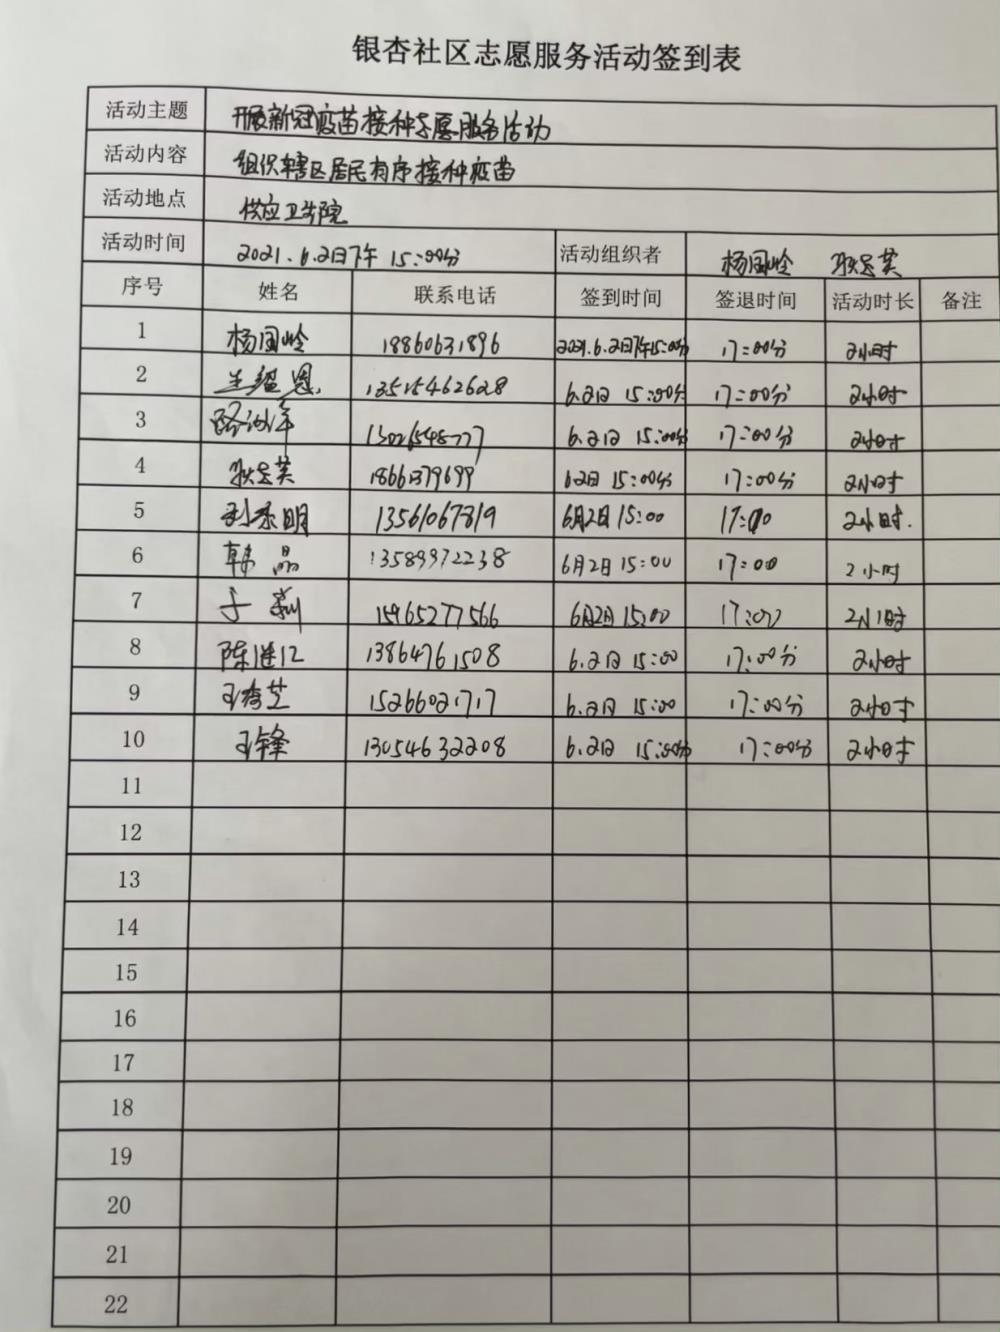 银杏社区志愿服务活动签到表
活动主题 开展新冠疫苗接种志愿服务活动
活动内容 组织辖区居民有序接种疫苗
活动地点 供应卫学院
活动时间 2021.6.2日下午 15:00分 活动组织者 杨国岭
序号 姓名 联系电话 签到时间 签退时间 活动时长 备注
1 杨国岭 18860631896 2021.6.2日下午15:00分 17:00分 2小时
2 13515462628 6.2日 15:00分 17:00分 2小时
3 13026548777 6.2日 15:00分 17:00分 2小时
4 18661379699 6.2日 15:00分 17:00分 2小时
5 13561067819 6月2日 15:00 17:00 2小时.
6 韩晶 13589972238 6月2日 15:00 17:00 2小时
7 于莉 15965277566 6月2日 15:00 17:00 2小时
8 陈继江 13864761508 6.2日 15:00 17:00分 2小时
9 王秀芝 15266021717 6.2日 15:00 17:00分 2小时
10 王锋 13054632208 6.2日 15:00分 17:00分 2小时
11
12
13
14
15
16
17
18
19
20
21
22